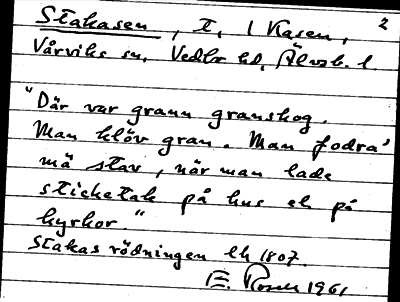 Stakasen, t, 1 Kasen, 2
Vårviks sn, Vedbo hd, Älvsb. l
"Där var grann granskog.
Man klöv gran. Man fodra'
mä stav, när man lade
sticketak på hus el på
kyrkor."
Stakas rödningen lh 1807.
E. Rosell 1961